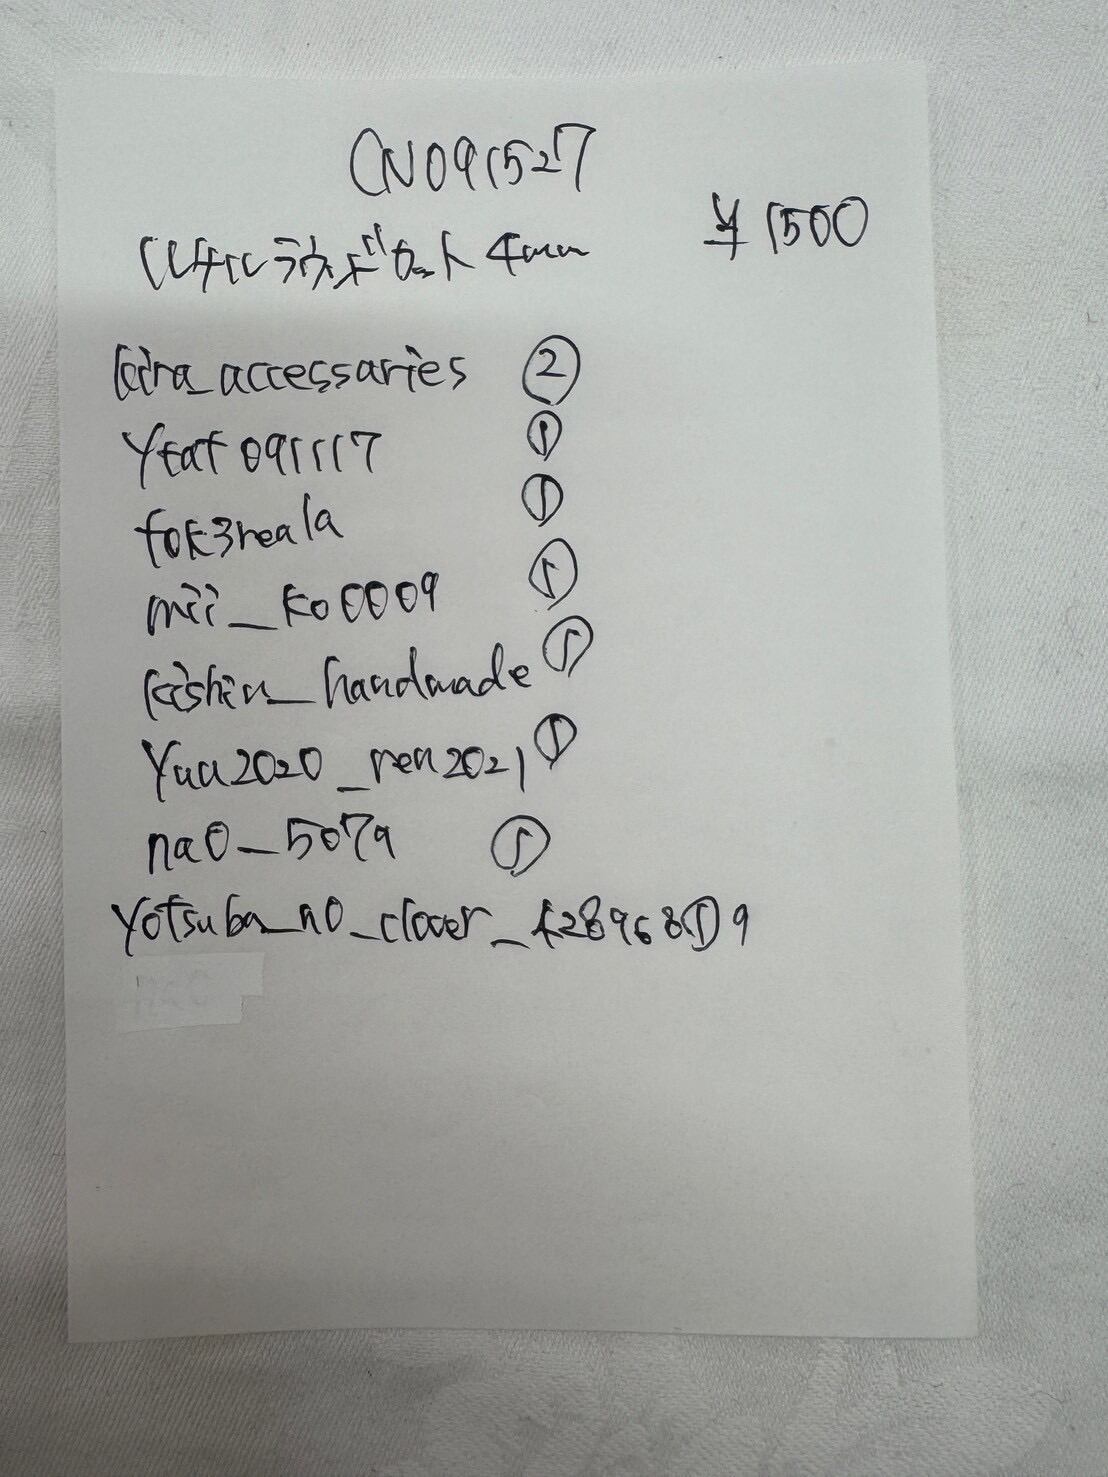 CN091527
¥1500
ルチルラウンドカット 4mm
kira_accessaries ②
ytat091117 ①
fok3reala ①
mii_ko0009 ①
kishin_handmade ①
yuu2020_ren2021 ①
na0_507a ①
yotsuba_no_clover_428968①9